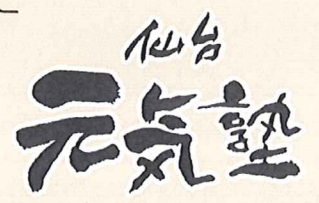 仙台
元気塾